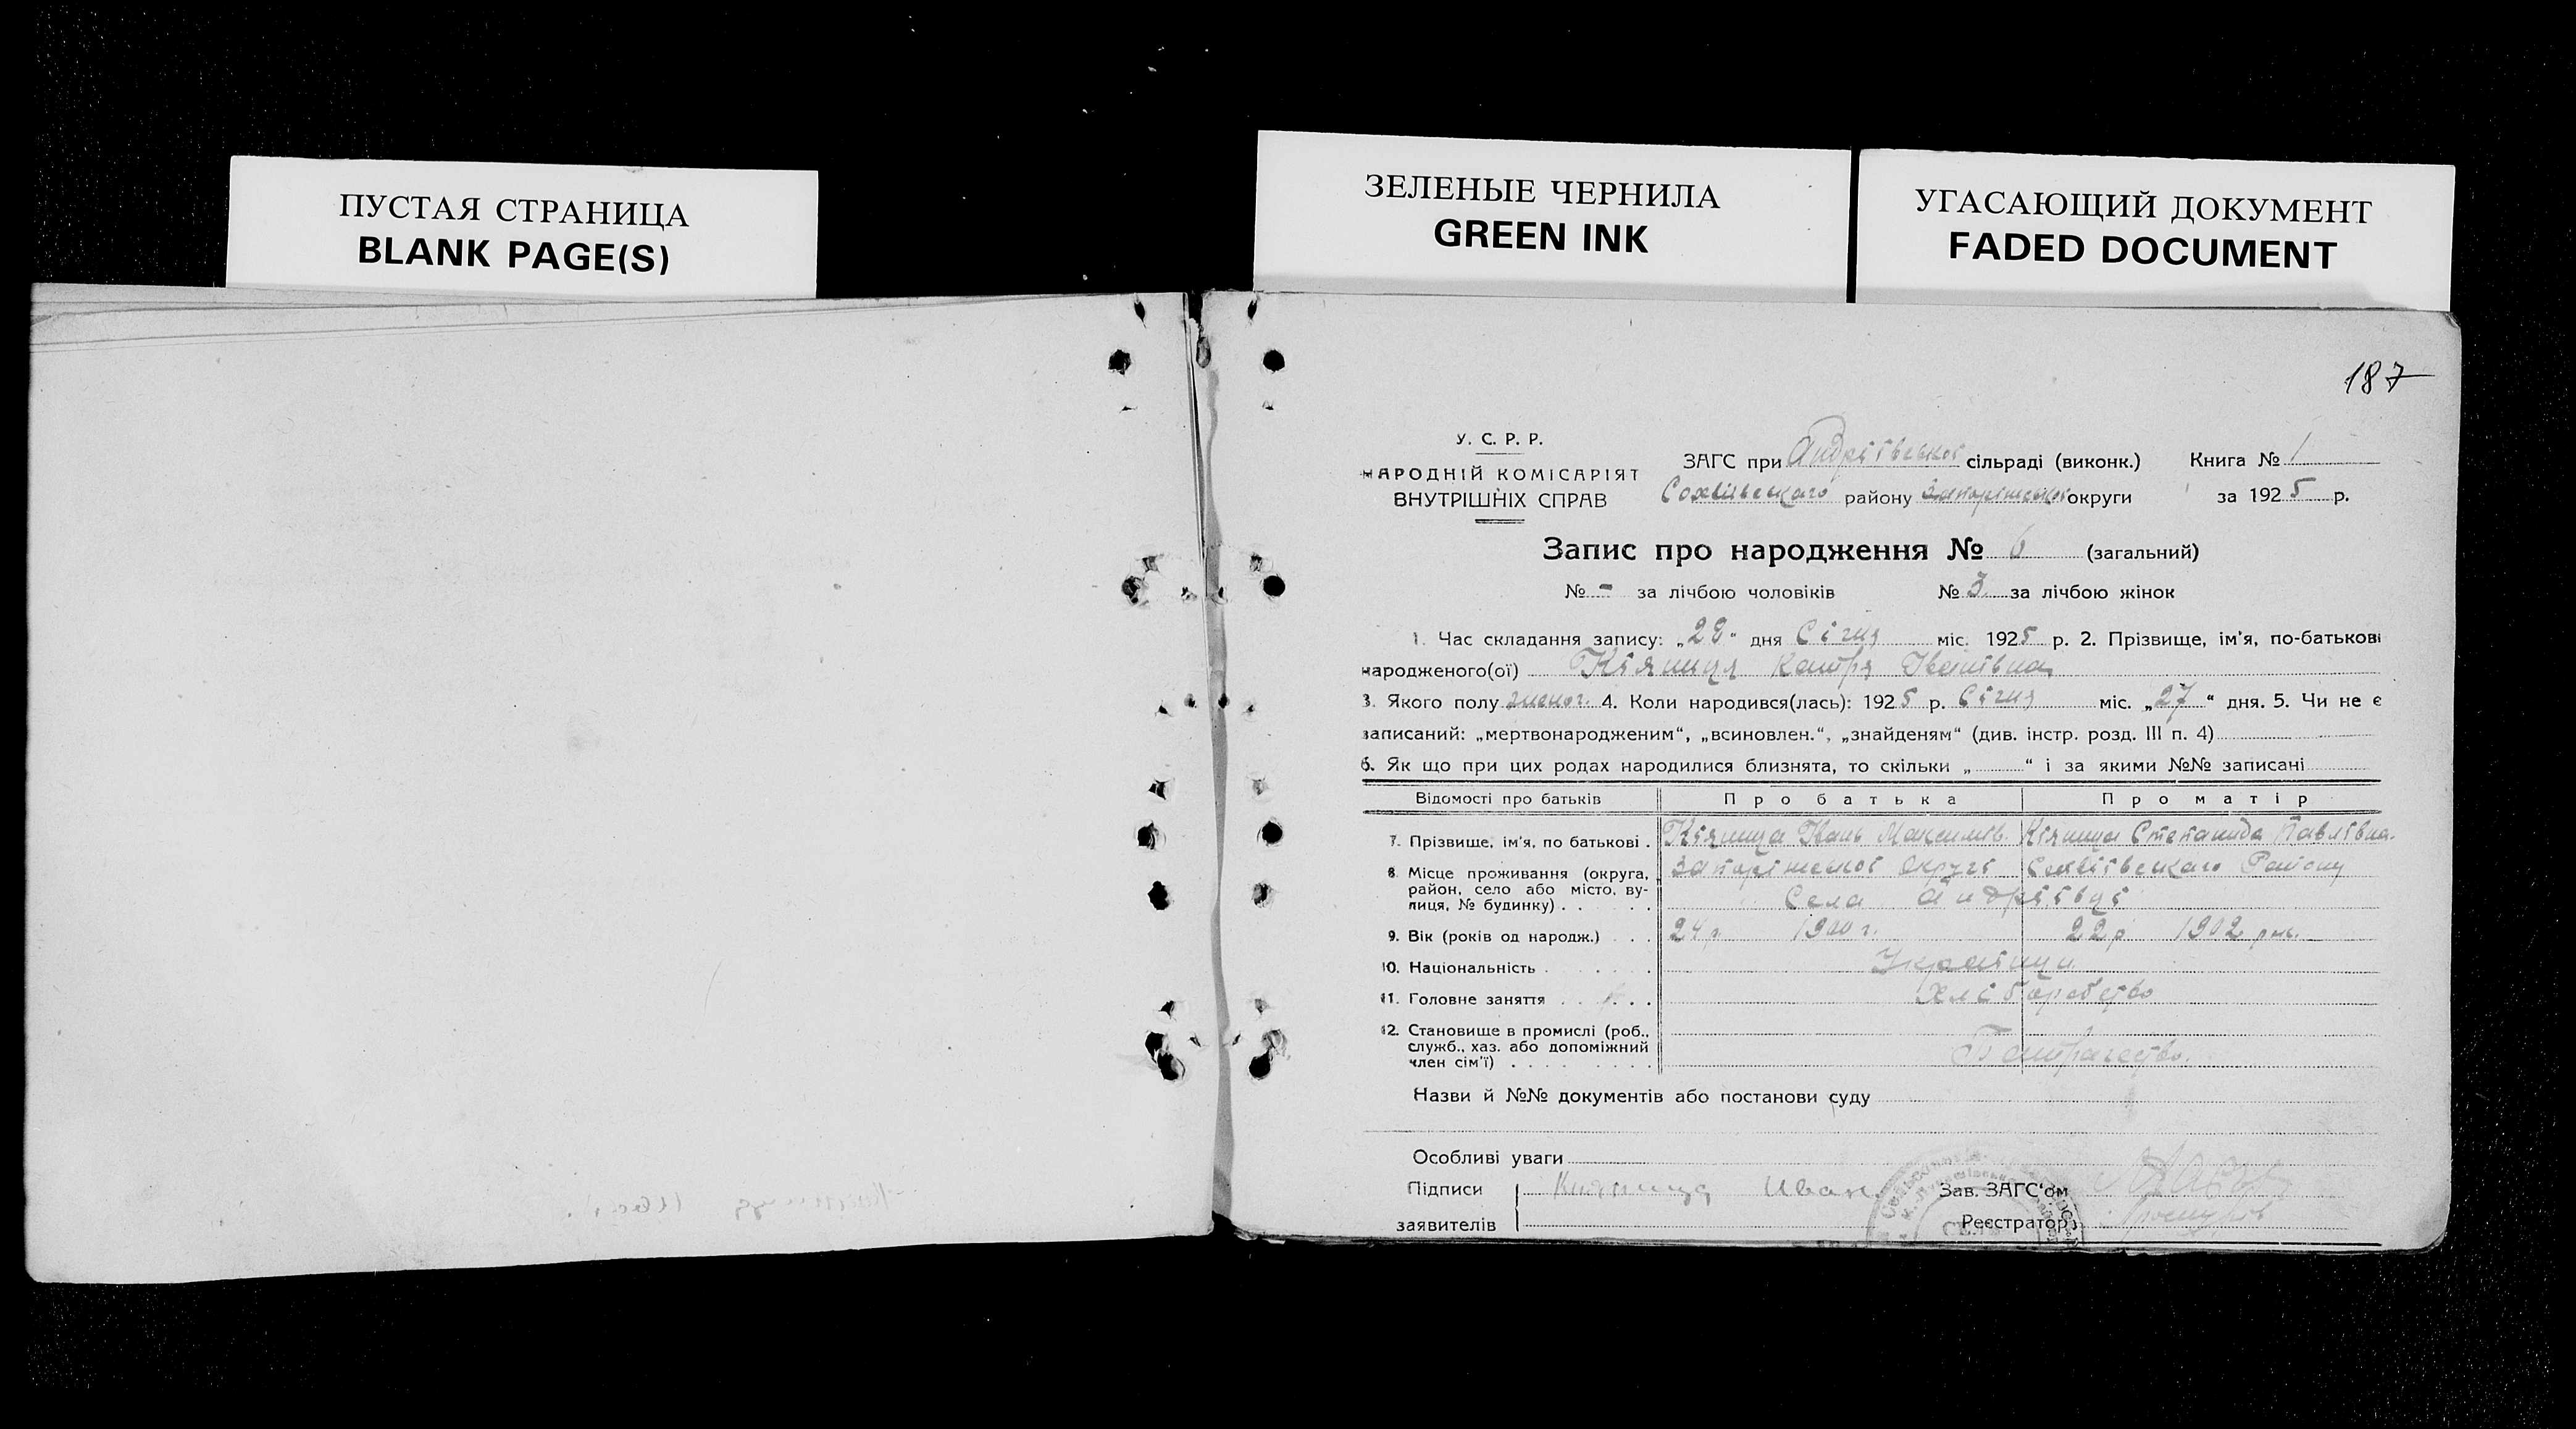 ПУСТАЯ СТРАНИЦА
BLANK PAGE(S)
ЗЕЛЕНЫЕ ЧЕРНИЛА
GREEN INK
УГАСАЮЩИЙ ДОКУМЕНТ
FADED DOCUMENT
187
У. С. Р. Р.
НАРОДНІЙ КОМІСАРІЯТ
ВНУТРІШНІХ СПРАВ
ЗАГС при Андріївської сільраді (виконк.) Книга № 1
району округи за 1925 р.
Запис про народження № 6 (загальний)
№ - за лічбою чоловіків № 3 за лічбою жінок
1. Час складання запису: „29“ дня Січня міс. 1925 р. 2. Прізвище, ім'я, по-батькові
народженого(ої) Кіяниця Катря Іванівна
3. Якого полу женог. 4. Коли народився(лась): 1925 р. Січня міс. „27“ дня. 5. Чи не є
записаний: „мертвонародженим“, „всиновлен.“, „знайденям“ (див. інстр. розд. III п. 4)
6. Як що при цих родах народилися близнята, то скільки „ “ і за якими №№ записані
Відомості про батьків Про батька Про матір
7. Прізвище, ім'я, по батькові . Кіяница Іванъ Максимів. Кіяница Степанида Павлівна.
8. Місце проживання (округа, Запоріжської Округі Району
район, село або місто, ву-
лиця, № будинку) . . . . . Села Андріївці
9. Вік (років од народж.) . . . 24 р. 1900 г. 22 р 1902 рок.
10. Національність . . . . . . Українци
11. Головне заняття . . . . . Хліборобство
12. Становище в промислі (роб.,
служб., хаз. або допоміжний
член сім'ї) . . . . . . . . . Батрачество.
Назви й №№ документів або постанови суду
Особливі уваги
Підписи Кияница Иван Зав. ЗАГС'ом
заявителів Реєстратор